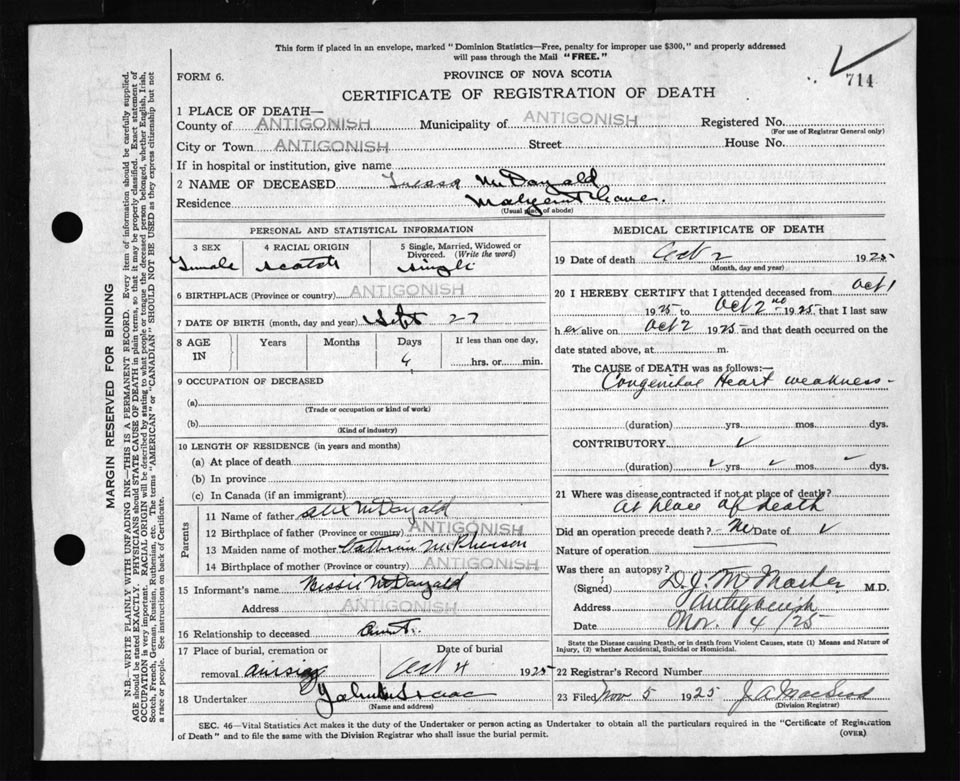 This form if placed in an envelope, marked "Dominion Statistics—Free, penalty for improper use $300," and properly addressed
will pass through the Mail "FREE."
714
FORM 6.
PROVINCE OF NOVA SCOTIA
CERTIFICATE OF REGISTRATION OF DEATH
1 PLACE OF DEATH—
County of ANTIGONISH Municipality of ANTIGONISH Registered No.
(For use of Registrar General only)
City or Town ANTIGONISH Street House No.
If in hospital or institution, give name
2 NAME OF DECEASED McDonald
Residence Malignant Cove.
(Usual place of abode)
PERSONAL AND STATISTICAL INFORMATION
3 SEX 4 RACIAL ORIGIN 5 Single, Married, Widowed or Divorced. (Write the word)
Female Scotch single
6 BIRTHPLACE (Province or country) ANTIGONISH
7 DATE OF BIRTH (month, day and year) Sept 27
8 AGE IN Years Months Days If less than one day,
hrs. or min.
9 OCCUPATION OF DECEASED
(a)
(Trade or occupation or kind of work)
(b)
(Kind of industry)
10 LENGTH OF RESIDENCE (in years and months)
(a) At place of death
(b) In province
(c) In Canada (if an immigrant)
Parents
11 Name of father Alex McDonald
12 Birthplace of father (Province or country) ANTIGONISH
13 Maiden name of mother McPherson
14 Birthplace of mother (Province or country) ANTIGONISH
15 Informant's name Bessie McDonald
Address ANTIGONISH
16 Relationship to deceased Aunt.
17 Place of burial, cremation or Date of burial
removal Arisaig Oct 4 1925
18 Undertaker
(Name and address)
MEDICAL CERTIFICATE OF DEATH
19 Date of death Oct 2 1925
(Month, day and year)
20 I HEREBY CERTIFY that I attended deceased from Oct 1
1925 to Oct 2nd 1925, that I last saw
her alive on Oct 2 1925 and that death occurred on
date stated above, at m.
The CAUSE of DEATH was as follows:—
Congenital Heart weakness—
(duration) yrs. mos. dys.
CONTRIBUTORY
(duration) yrs. mos. dys.
21 Where was disease contracted if not at place of death?
At place of death
Did an operation precede death? No Date of
Nature of operation
Was there an autopsy?
(Signed) M.D.
Address Antigonish
Date Nov. 4/25
State the Disease causing Death, or in death from Violent Causes, state (1) Means and Nature of
Injury, (2) whether Accidental, Suicidal or Homicidal.
22 Registrar's Record Number
23 Filed Nov 5 1925 J. A. MacLeod
(Division Registrar)
SEC. 46—Vital Statistics Act makes it the duty of the Undertaker or person acting as Undertaker to obtain all the particulars required in the "Certificate of Registration
of Death" and to file the same with the Division Registrar who shall issue the burial permit.
(OVER)
MARGIN RESERVED FOR BINDING
N.B.—WRITE PLAINLY WITH UNFADING INK—THIS IS A PERMANENT RECORD. Every item of information should be carefully supplied.
AGE should be stated EXACTLY. PHYSICIANS should STATE CAUSE OF DEATH in plain terms, so that it may be properly classified. Exact statement of
OCCUPATION is very important. RACIAL ORIGIN will be described by stating to what people or tongue the deceased person belonged, whether English, Irish,
Scotch, French, German, Russian, Ruthenian, etc. The terms "AMERICAN" or "CANADIAN" SHOULD NOT BE USED as they express citizenship but not
a race or people. See instructions on back of Certificate.